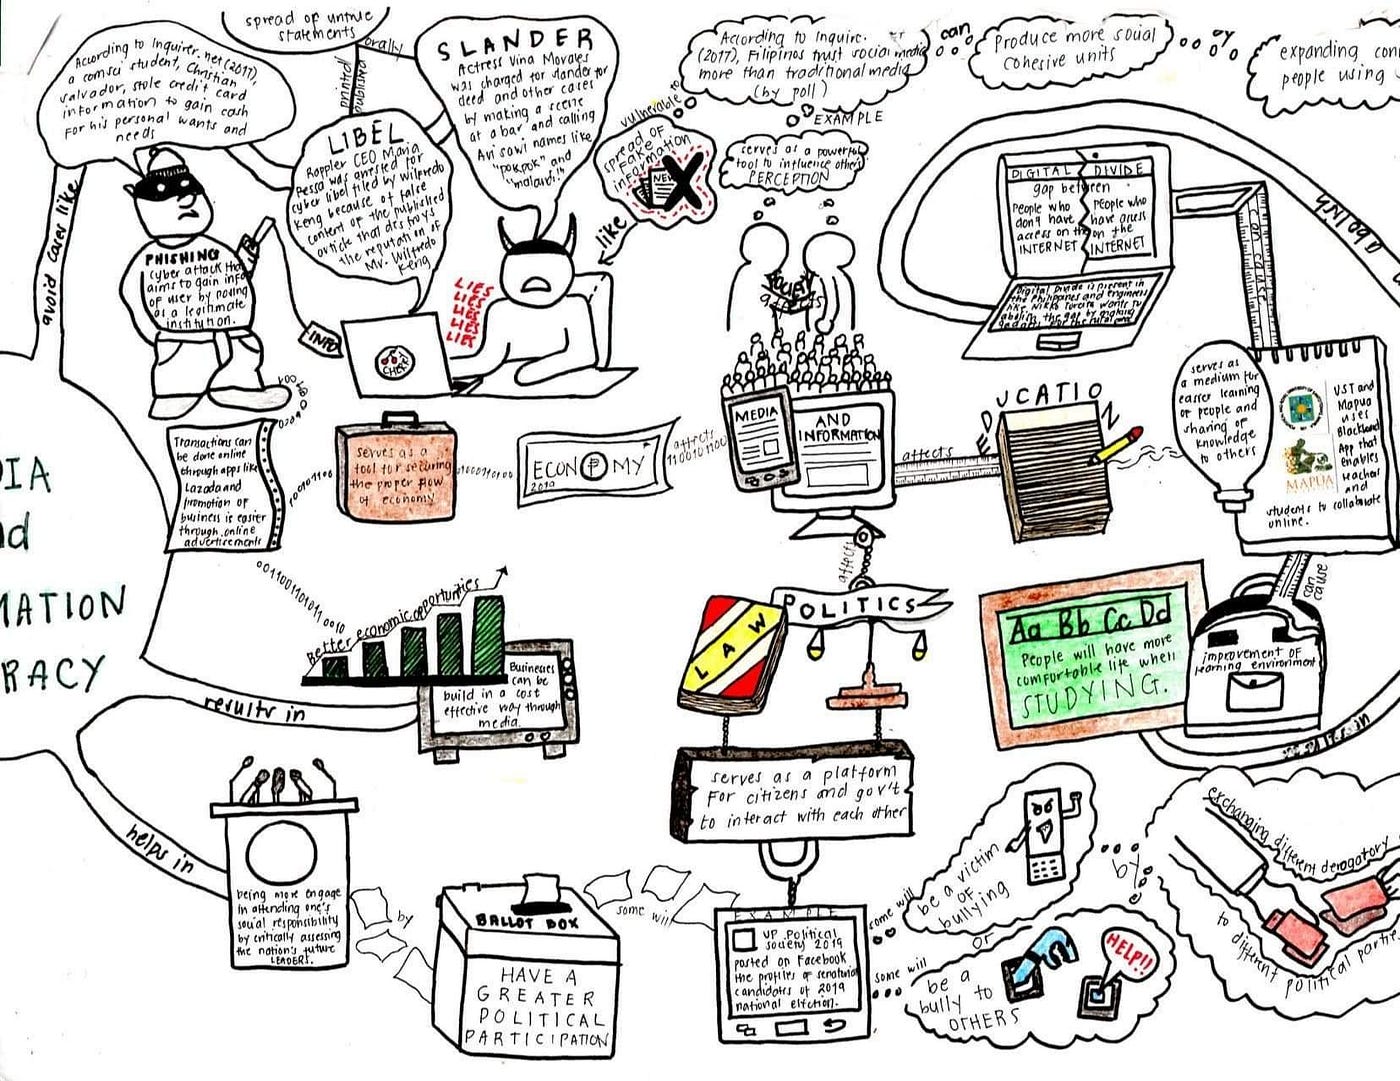 spread of untrue
statements
orally
printed
published
According to Inquirer.net (2017),
a comsci student, Christian
Salvador, stole credit card
information to gain cash
For his personal wants and
needs
avoid cases like
PHISHING
cyber attack that
aims to gain info
of user by posing
as a legitimate
institution.
INFO
LIBEL
Rappler CEO Maria
Ressa was arrested for
cyber libel filed by Wilfredo
Keng because of false
content of the published
article that destroys
the reputation of
Mr. Wilfredo
Keng
SLANDER
Actress Vina Morales
was charged for slander for
deed and other cases
by making a scene
at a bar and calling
Avi Siwi names like
"pokpok" and
"malandi!"
LIES
LIES
LIES
LIES
LIES
like
spread of
fake
information
NEWS
vulnerable to
According to Inquirer.net
(2017), Filipinos trust social media
more than traditional media
(by poll)
EXAMPLE
serves as a powerful
tool to influence others
PERCEPTION
can
Produce more social
cohesive units
by
expanding con
people using
SOCIETY
affects
MEDIA
AND
INFORMATION
DIGITAL DIVIDE
gap between
People who
don't have
access on the
INTERNET
People who
have access
on the
INTERNET
Digital Divide is present in
the Philippines and engineers
can cause
affects
EDUCATION
serves as
a medium for
easier learning
of people and
sharing of
knowledge
to others
UST and
Mapua
uses
Blackboard
App that
enables
teacher
and
students to collaborate
online.
MAPUA
can
cause
improvement of
learning environment
results in
Aa Bb Cc Dd
People will have more
comfortable life when
STUDYING.
affects
110010110
ECONOMY
2019
serves as a
tool for securing
the proper flow
of economy
Transactions can
be done online
through apps like
Lazada and
promotion of
business is easier
through online
advertisements
Better economic opportunities
Businesses
can be
build in a cost
effective way through
media.
results in
DIA
nd
MATION
RACY
helps in
being more engage
in attending one's
social responsibility
by critically assessing
the nation's future
LEADERS.
by
BALLOT BOX
HAVE A
GREATER
POLITICAL
PARTICIPATION
some will
affects
POLITICS
LAW
serves as a platform
For citizens and gov't
to interact with each other
EXAMPLE
UP Political
Society 2019
posted on Facebook
the profiles of senatorial
candidates of 2019
national election.
some will
be a victim
OF
bullying
or
some will
be a
bully to
OTHERS
HELP!!
by
exchanging different derogatory
to different political parties